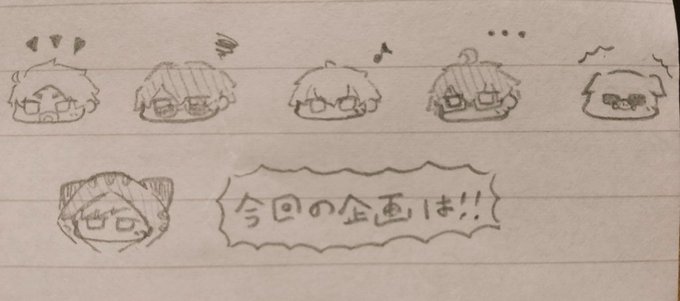 今回の企画は!!